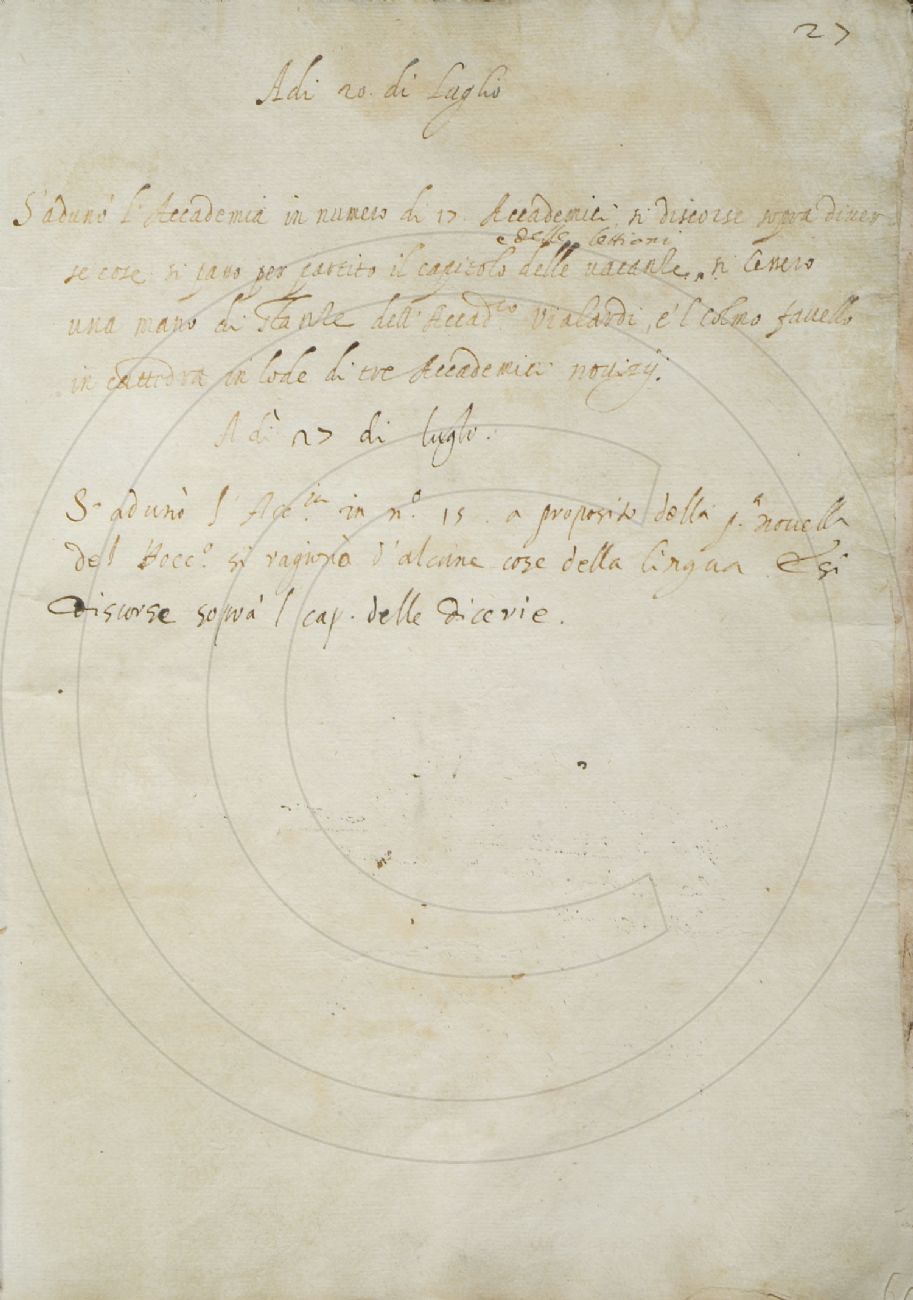 27
Adi 20. di Luglio
S'adunò l'Accademia in numero di 17. Accademici si discorse sopra diver
e delle lettioni
se cose si pass per partito il capitolo delle vacanze, si lessero
una mano di stanze dell'Accad.co Vialardi, e'l Colmo favellò
in cattedra in lode di tre Accademici novizij.
A dì 27 di luglio.
S'adunò l'Acc.ia in n.o 15. a proposito della p.a novella
del Bocc.o si ragionò d'alcune cose della lingua e si
discorse sopra l cap. delle dicerie.